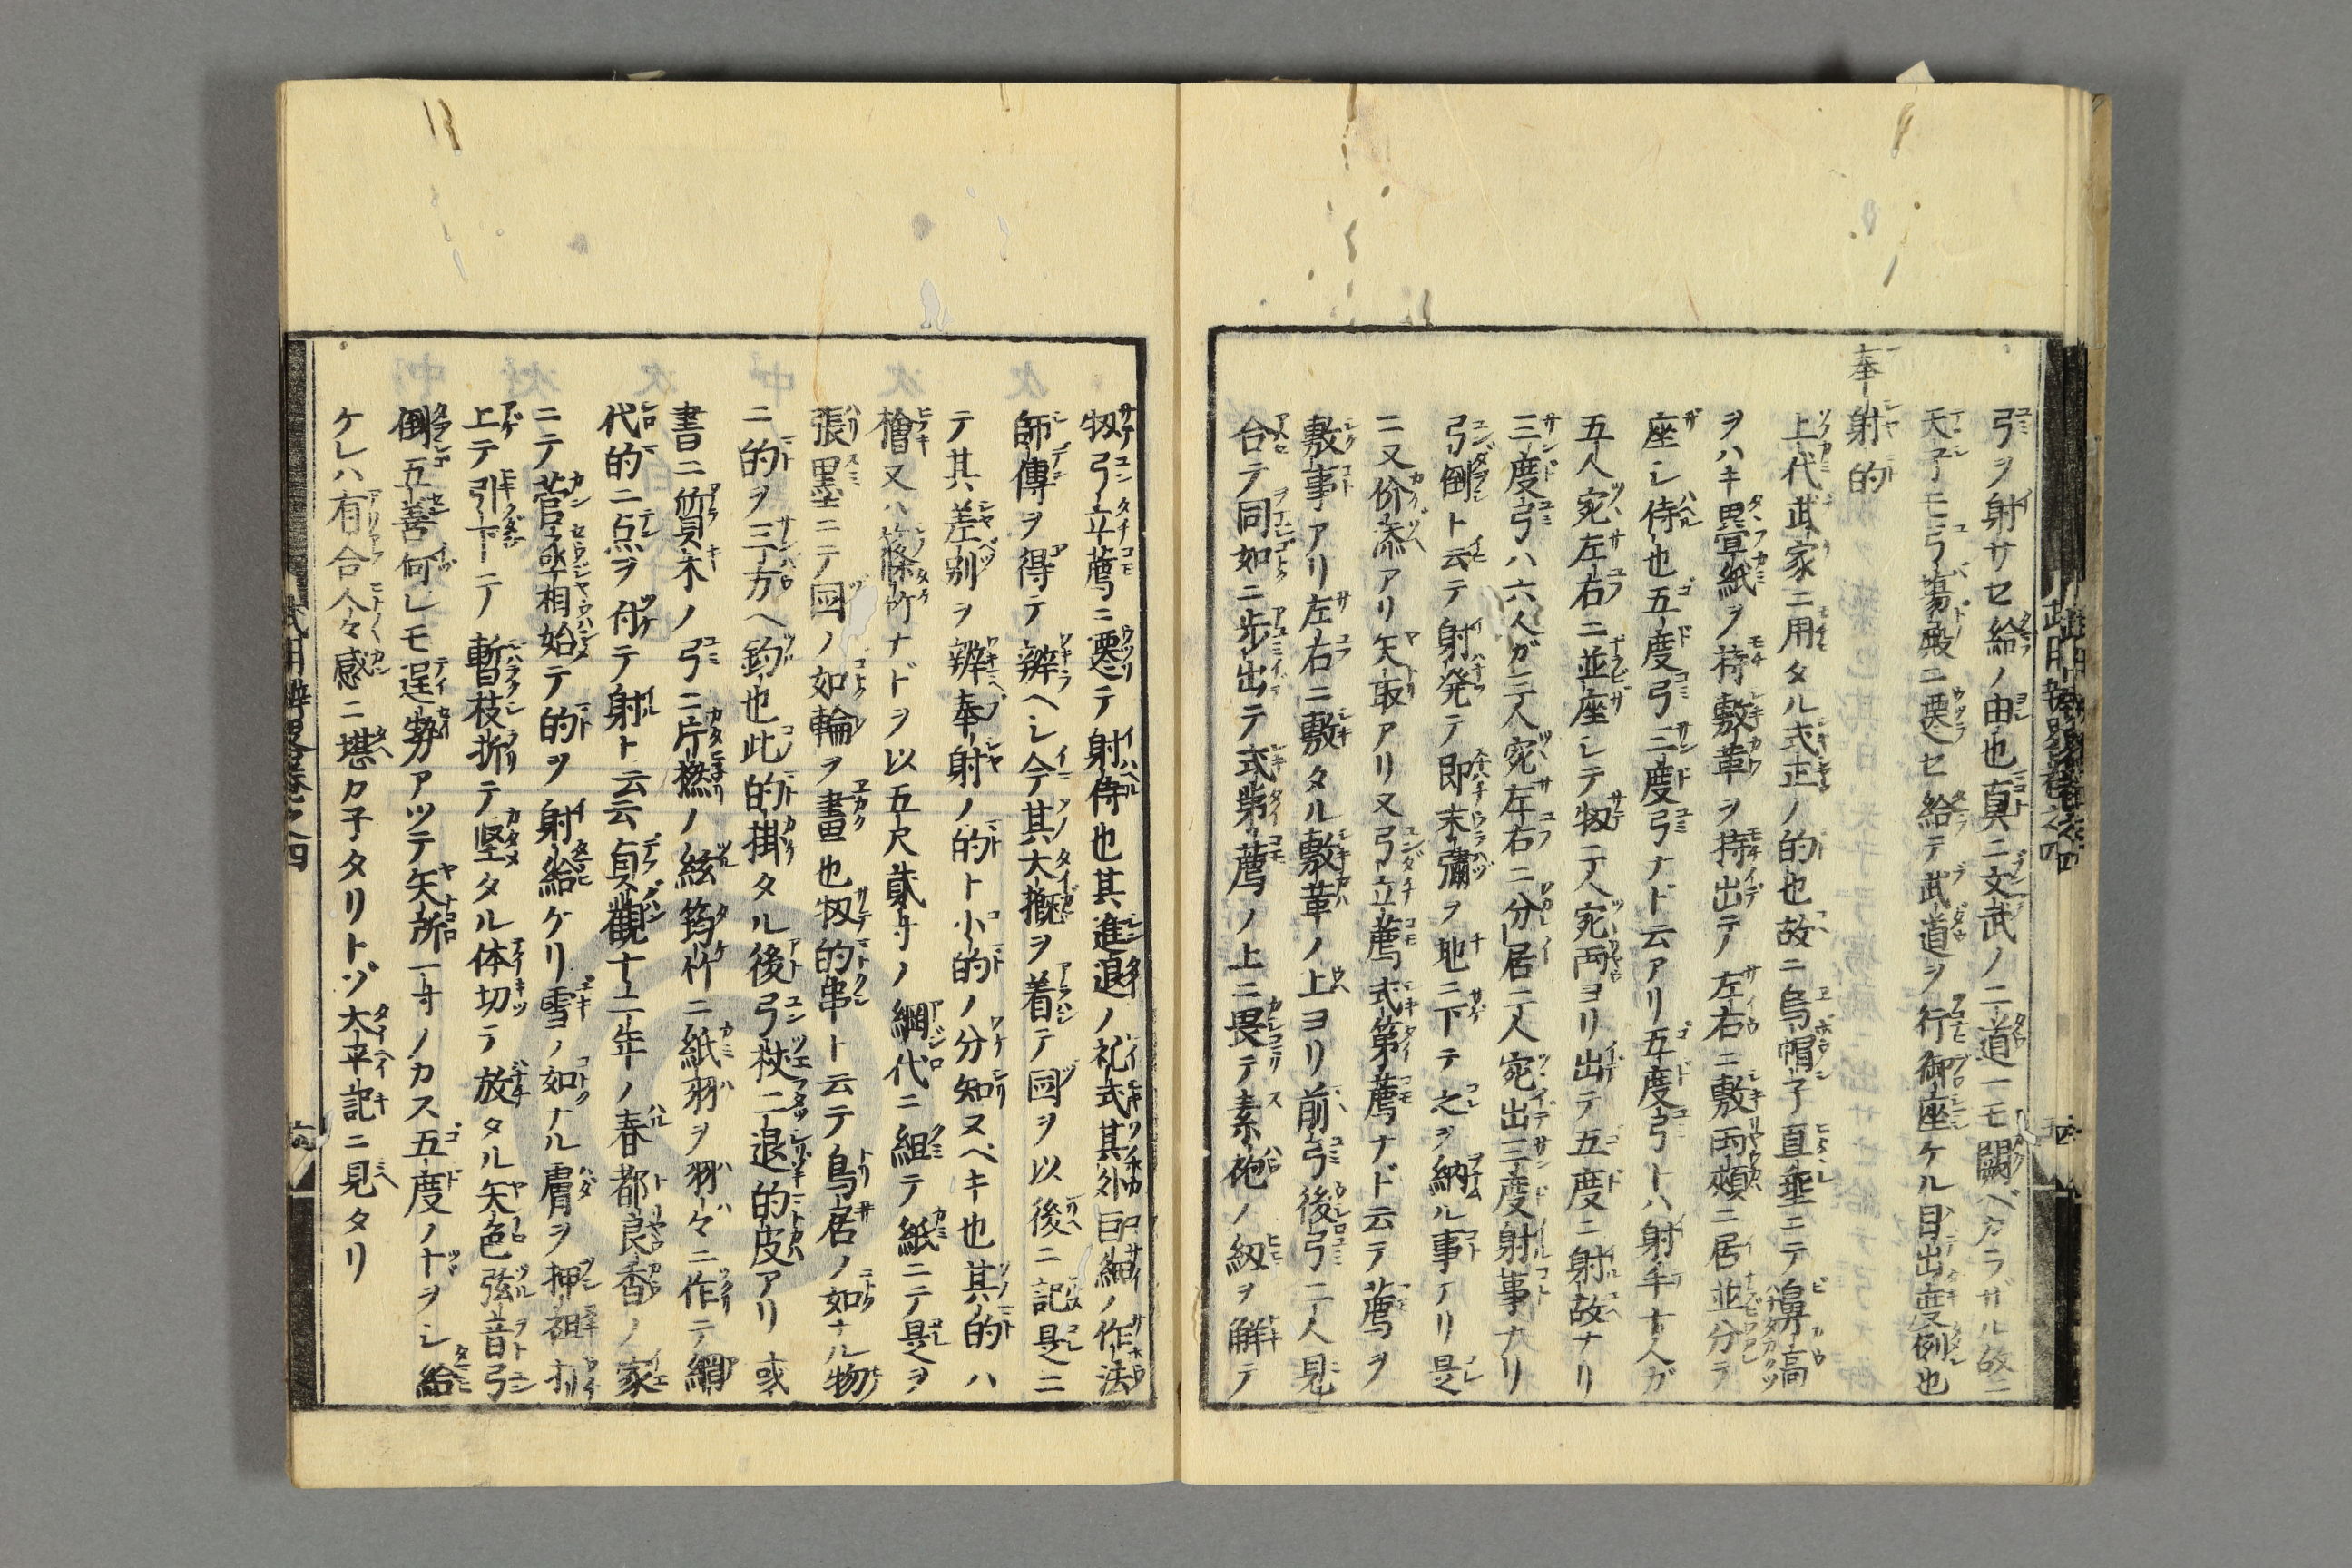 弓ヲ射サセ給ノ由也真ニ文武ノ二道一モ闕ベカラザル故ニ
天子モ弓場殿ニ遷セ給テ武道ヲ行御座ケル目出度例也
奉射的
上代武家ニ用タル式正ノ的也故ニ烏帽子直垂ニテ鼻高
ヲハキ畳紙ヲ持敷革ヲ持出テノ左右ニ敷両頰ニ居並分テ
座シ侍也五度弓三度弓ナド云アリ五度弓トハ射手十人ガ
五人宛左右ニ並座シテ扨二人宛両ヨリ出テ五度ニ射故ナリ
三度弓ハ六人ガ三人宛左右ニ分居二人宛出三度射事ナリ
弓倒ト云テ射発テ即末彌ヲ地ニ下テ之ヲ納ル事アリ是
ニ又价添アリ矢取アリ又弓立薦式第薦ナド云テ薦ヲ
敷事アリ左右ニ敷タル敷革ノ上ヨリ前弓後弓二人見
合テ同如ニ歩出テ式第薦ノ上ニ畏テ素砲ノ紐ヲ解テ
武用辨畧巻之四
扨弓立薦ニ遷テ射侍也其進退ノ礼式其外巨細ノ作法
師傳ヲ得テ辨ヘシ今其大概ヲ着テ図ヲ以後ニ記是ニ
テ其差别ヲ辨奉射ノ的ト小的ノ分知ヌベキ也其的ハ
檜又ハ篠竹ナドヲ以五尺貳寸ノ網代ニ組テ紙ニテ是ヲ
張墨ニテ図ノ如輪ヲ畫也扨的串ト云テ鳥居ノ如ナル物
ニ的ヲ三方ヘ釣也此的掛タル後弓杖二退的皮アリ或
書ニ質木ノ弓ニ片撚ノ絃筠竹ニ紙羽ヲ羽々ニ作テ網
代的ニ点ヲ付テ射ト云云貞觀十二年ノ春都良香ノ家
ニテ菅丞相始テ的ヲ射給ケリ雪ノ如ナル膚ヲ押袒打
上テ引下ニテ暫枝折テ堅タル体切テ放タル矢色弦音弓
倒五善何レモ逞勢アツテ矢所一寸ノカス五度ノ十ヲシ給
ケレハ有合人々感ニ堪カ子タリトゾ太平記ニ見タリ
武用辨畧巻之四